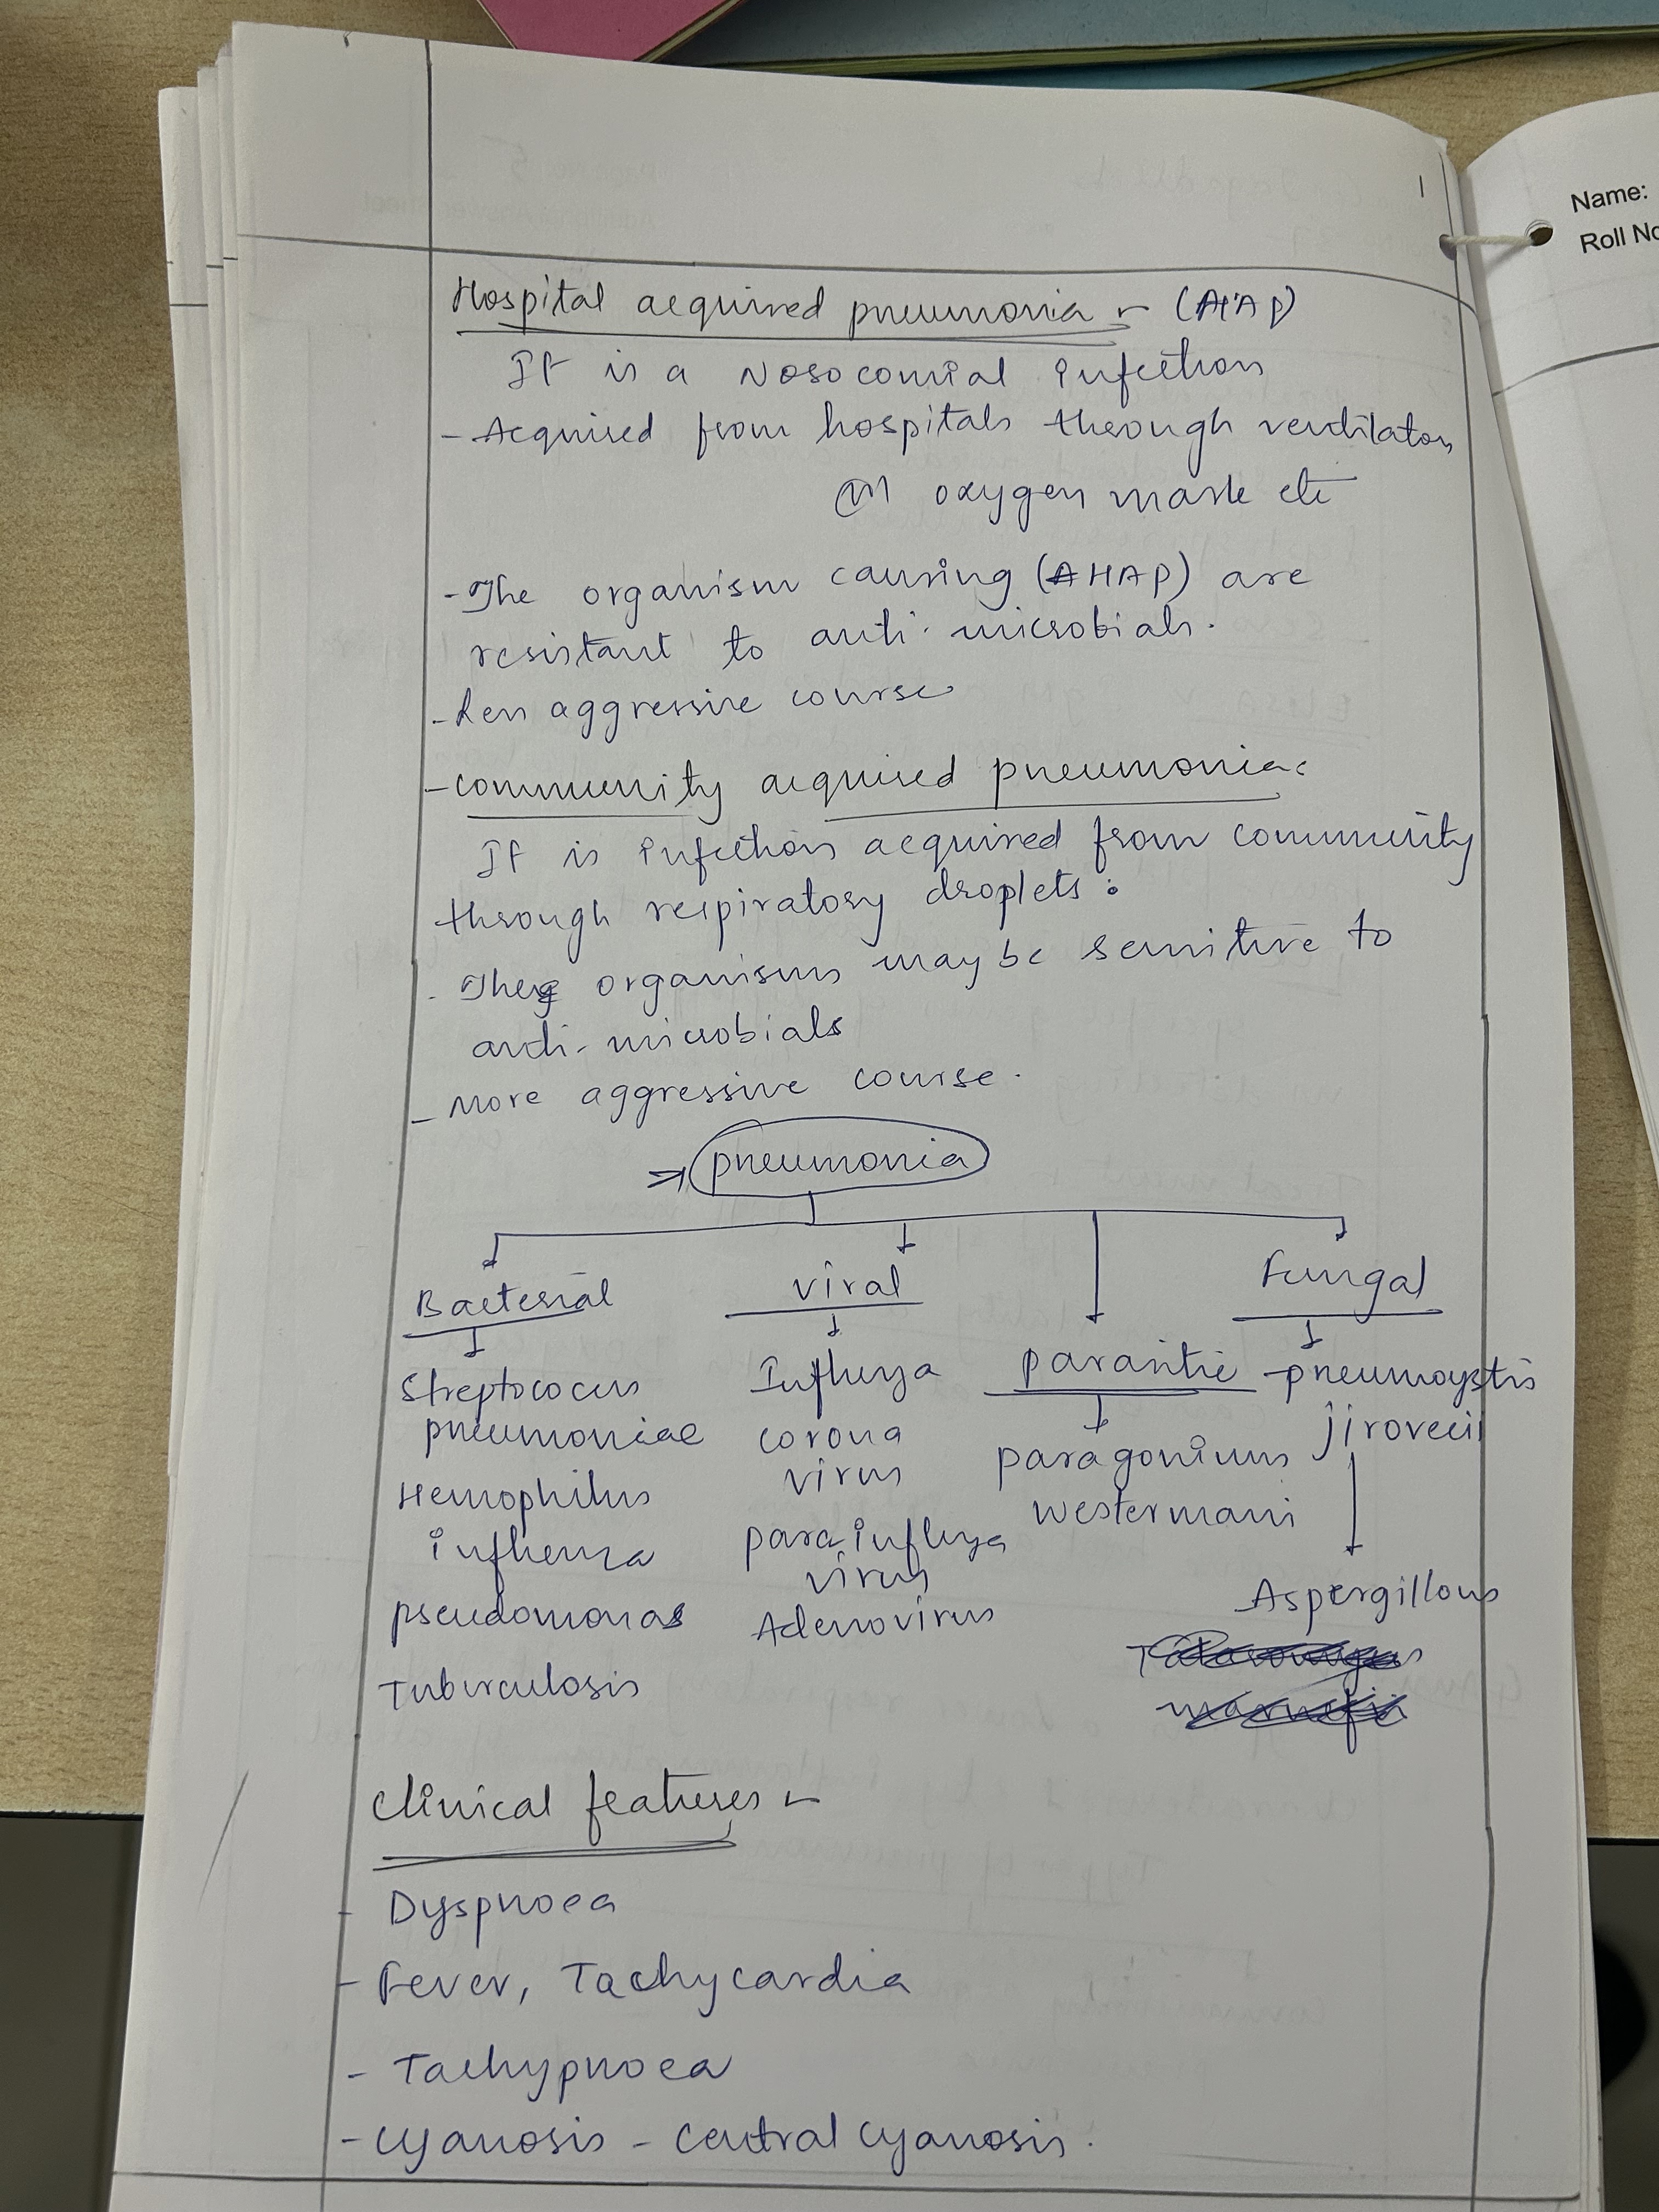 Name:
Roll No
Hospital acquired pneumonia - (HAP)
It is a Nosocomial infection
- Acquired from hospitals through ventilators
(or) oxygen mask etc
- The organism causing (HAP) are
resistant to anti-microbials.
- Less aggressive course
- Community acquired pneumonia:
It is infection acquired from community
through respiratory droplets.
- These organisms may be sensitive to
anti-microbials
- More aggressive course.
⇒ pneumonia
Bacterial viral Fungal
Streptococcus Influenza parasitic - pneumocystis
pneumoniae corona paragonimus jirovecii
Hemophilus virus westermani
influenza parainfluenza
virus Aspergillous
pseudomonas Adenovirus
Tuburculosis
Clinical features -
- Dyspnoea
- Fever, Tachycardia
- Tachypnoea
- cyanosis - central cyanosis.